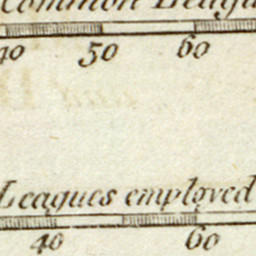 Common Leagu
40 50 60
Leagues employed
40 60